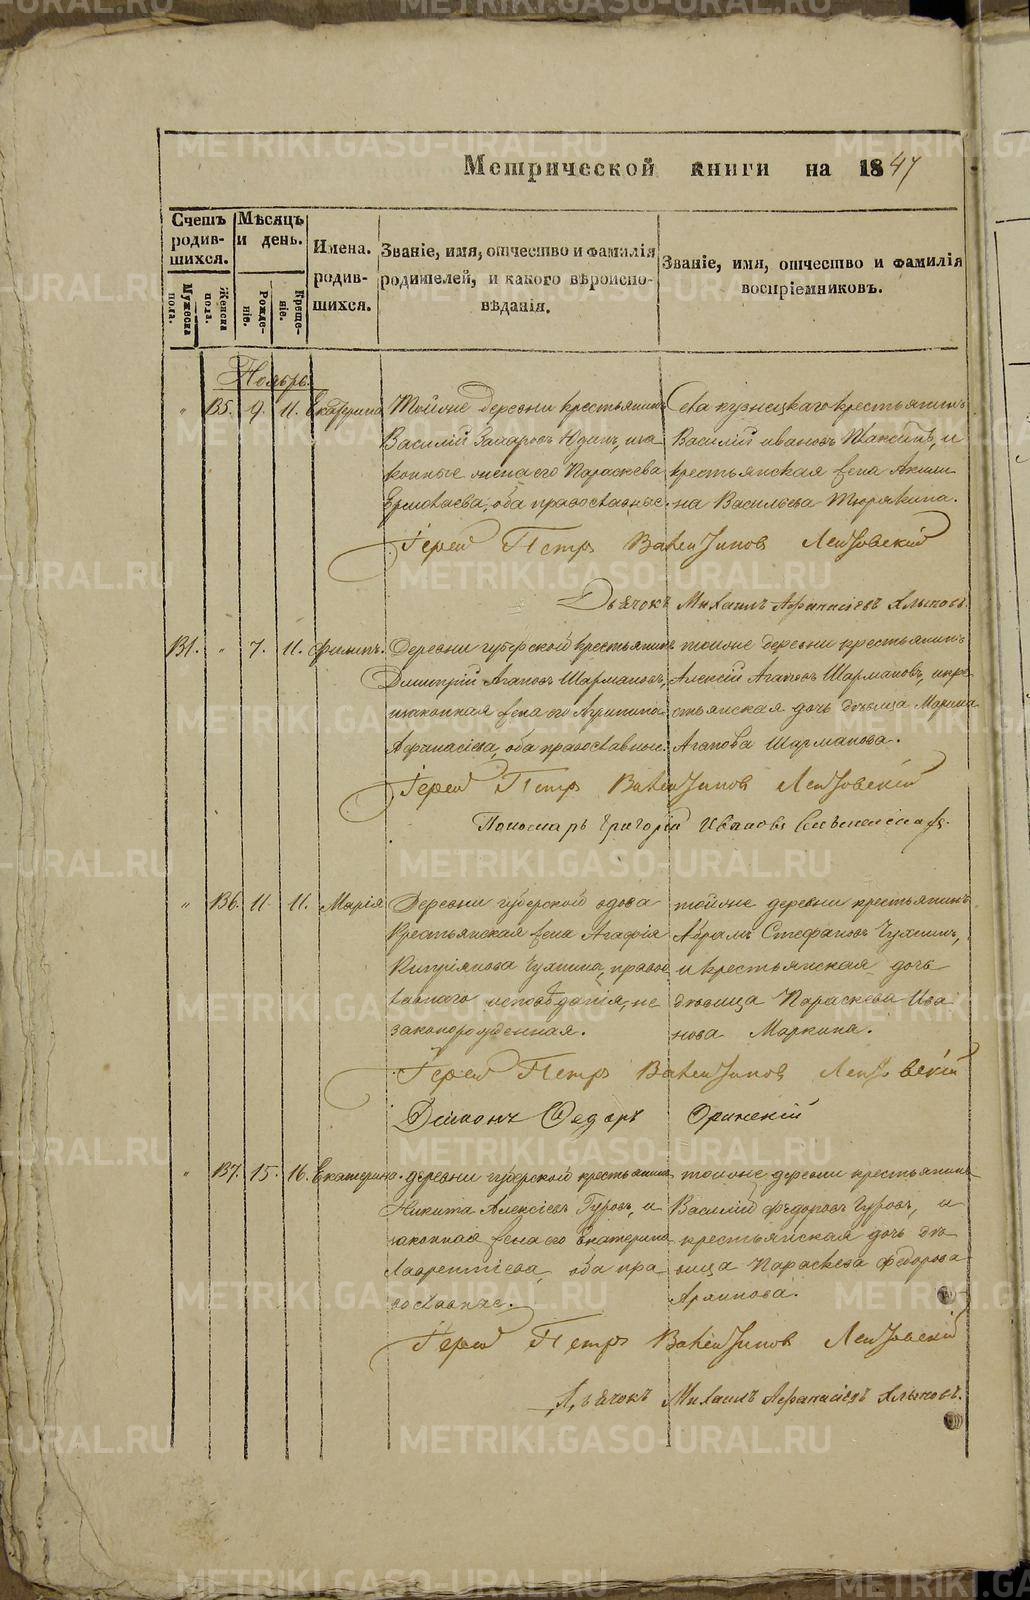 Метрической книги на 1847
Счетъ родив-шихся.
Мужеска пола.
Женска пола.
Мѣсяцъ и день.
Рожде-ніе.
Креще-ніе.
Имена. родив-шихся.
Званіе, имя, отчество и фамилія
родителей, и какого вѣроиспо-
вѣданія.
Званіе, имя, отчество и фамилія
воспріемниковъ.
Ноябрь.
" 135. 9. 11. Екатерина
Тойже деревни крестьянинъ
Василий Захаровъ Юдинъ, и за
конные жена его Параскева
Ермолаева, оба православные.
Села кузнецкаго крестьянинъ
Василий ивановъ, и
крестьянская жена Акили
на Васильева Тюрякина.
Іерей Петръ Валентиновъ
Дьячокъ Михаилъ Афанасіевъ Хлыновъ.
131. " 7. 11. Филипъ.
Деревни губерской крестьянинъ
Димитрій Агаповъ Шармановъ,
и законная жена его Агрипина
Афанасіева, оба православные.
тойже деревни крестьянинъ
Алексій Агаповъ Шармановъ, и кре-
стьянская дочь дѣвица Марина
Агапова Шарманова.
Іерей Петръ Валентиновъ
Пономарь Григорій Ивановъ
" 136. 11. 11. Марія
Деревни губерской вдова
крестьянская жена Агафія
Кипріянова, право
славнаго исповѣданія, не
законорожденная.
тойже деревни крестьянинъ
Абрамъ Стефановъ
и крестьянская дочь
дѣвица Параскева Ива
нова Маркина.
Іерей Петръ Валентиновъ
Діаконъ Федоръ
" 137. 15. 16. Екатерина.
деревни губерской крестьянинъ
Никита Алексіевъ Гуровъ, и
законная жена его Екатерина
Лаврентіева, оба пра
вославные.
тойже деревни крестьянинъ
Василий Федоровъ Гуровъ, и
крестьянская дочь дѣ
вица Параскева Федорова
Архипова.
Іерей Петръ Валентиновъ
Дьячокъ Михаилъ Афанасіевъ Хлыновъ.
METRIKI.GASO-URAL.RU